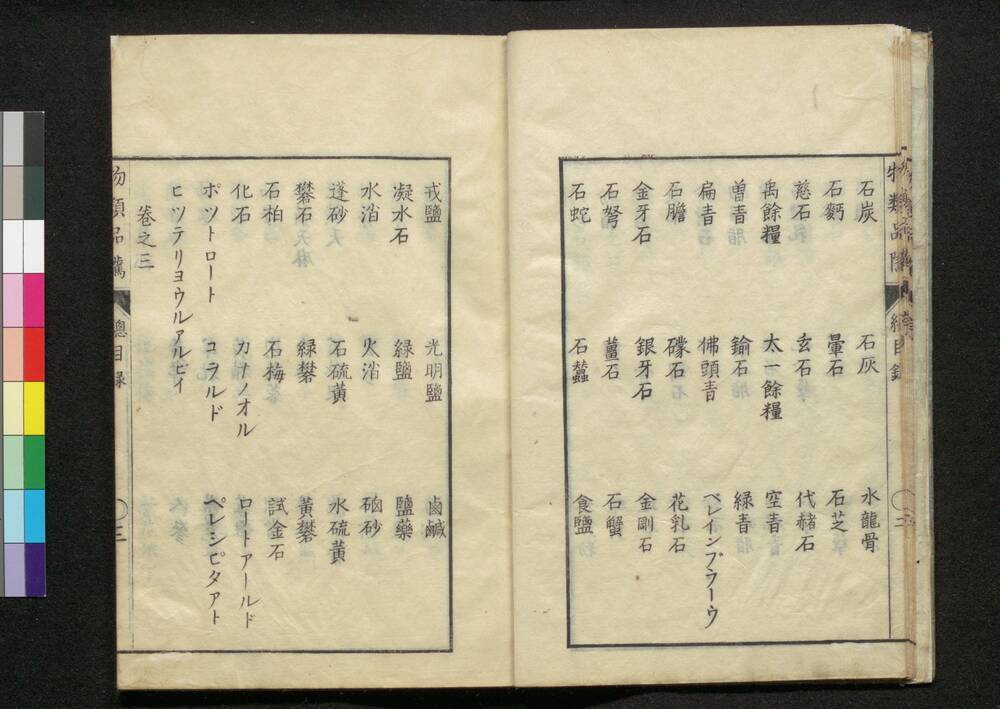 物類品隲 總目錄 〇三
石炭 石灰 水龍骨
石麪 暈石 石芝
慈石 玄石 代赭石
禹餘糧 太一餘糧 空青
曾青 鍮石 緑青
扁青 佛頭青 ベレインブラーウ
石膽 礞石 花乳石
金牙石 銀牙石 金剛石
石弩 薑石 石蟹
石蛇 石蠶 食鹽
戎鹽 光明鹽 鹵鹹
凝水石 緑鹽 鹽藥
水消 火消 硇砂
蓬砂 石硫黃 水硫黃
礬石 緑礬 黃礬
石栢 石梅 試金石
化石 カナノオル ロートアールド
ポツトロート コヲルド ペレシピタアト
ヒツテリヨウルアルビイ
卷之三
物類品隲 總目錄 〇三